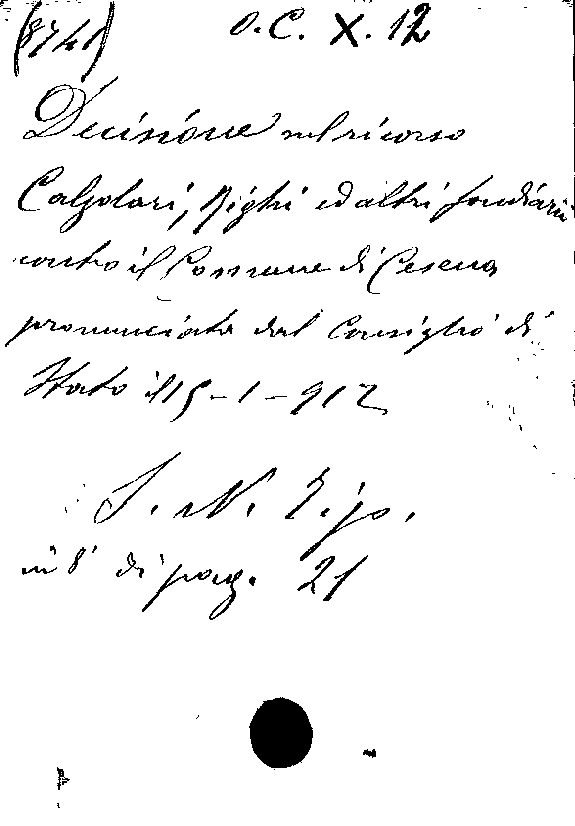 (8741) O.C. X. 12
Decisione nel ricorso
Calzolari, Righi ed altri fondiarii
contro il Comune di Cesena
pronunciata dal Consiglio di
Stato il 15-1-912
S. N. Tip.
in 8° di pag. 21